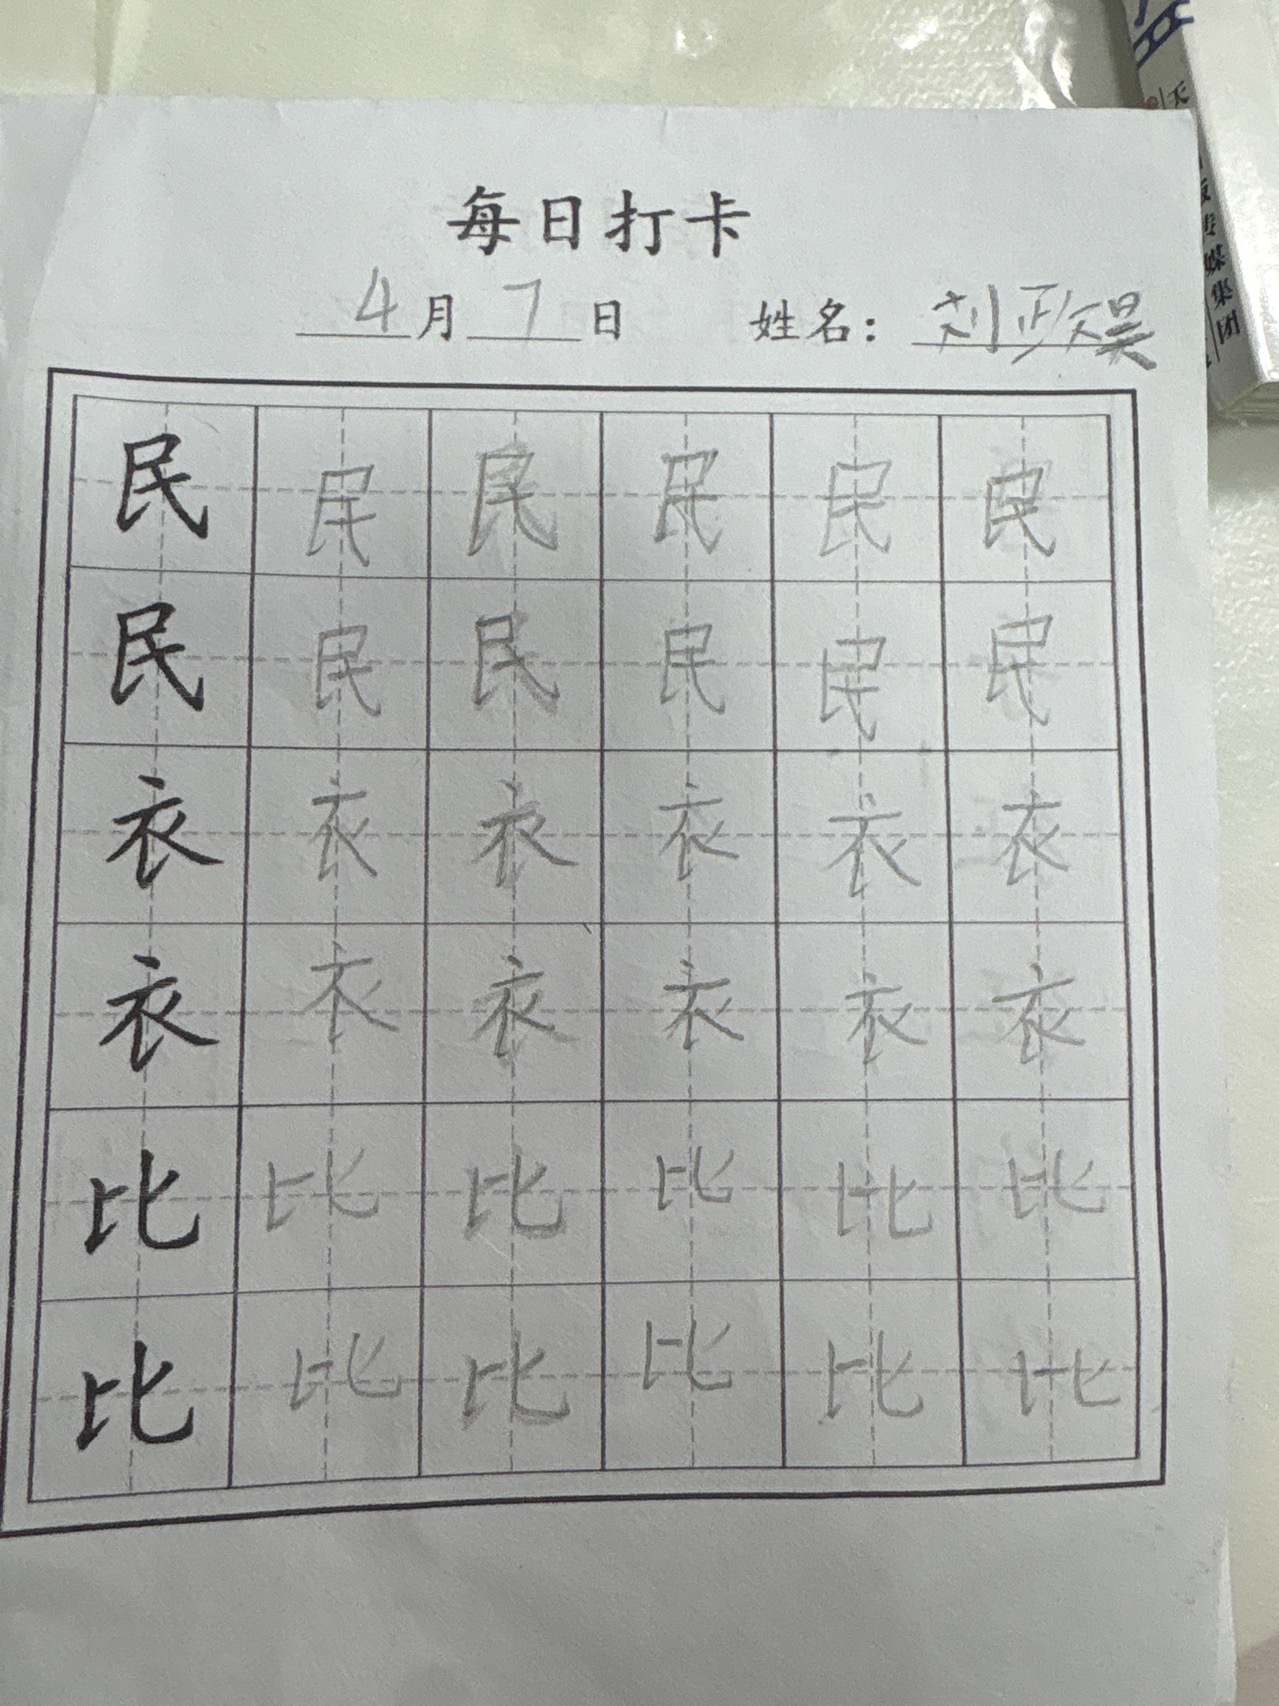 每日打卡
4月7日 姓名：刘政昊
民 民 民 民 民 民
民 民 民 民 民 民
衣 衣 衣 衣 衣 衣
衣 衣 衣 衣 衣 衣
比 比 比 比 比 比
比 比 比 比 比 比
媒集团